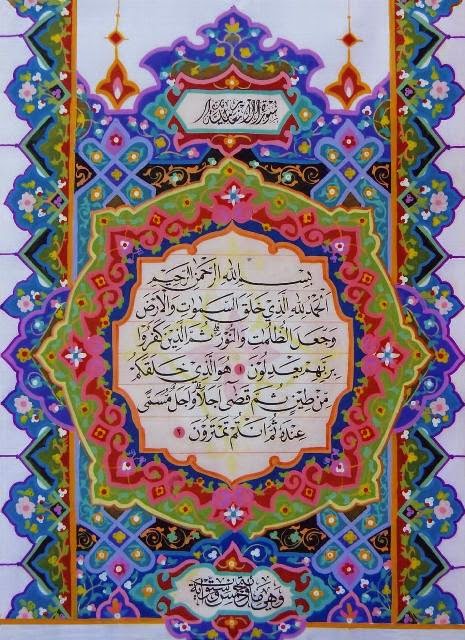 سورة الأنعام
بِسْمِ اللهِ الرَّحْمٰنِ الرَّحِيمِ
اَلْحَمْدُ لِلهِ الَّذِي خَلَقَ السَّمٰوَاتِ وَالْاَرْضَ
وَجَعَلَ الظُّلُمَاتِ وَالنُّورَ ثُمَّ الَّذِينَ كَفَرُوا
بِرَبِّهِمْ يَعْدِلُونَ ١ هُوَ الَّذِي خَلَقَكُمْ
مِنْ طِينٍ ثُمَّ قَضٰى اَجَلًا وَاَجَلٌ مُسَمًّى
عِنْدَهُ ثُمَّ اَنْتُمْ تَمْتَرُونَ ٢
وهي مائة وخمس وستون آية